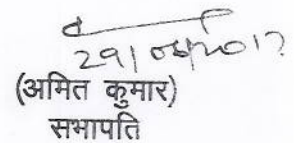 29/06/2017
(अमित कुमार)
सभापति